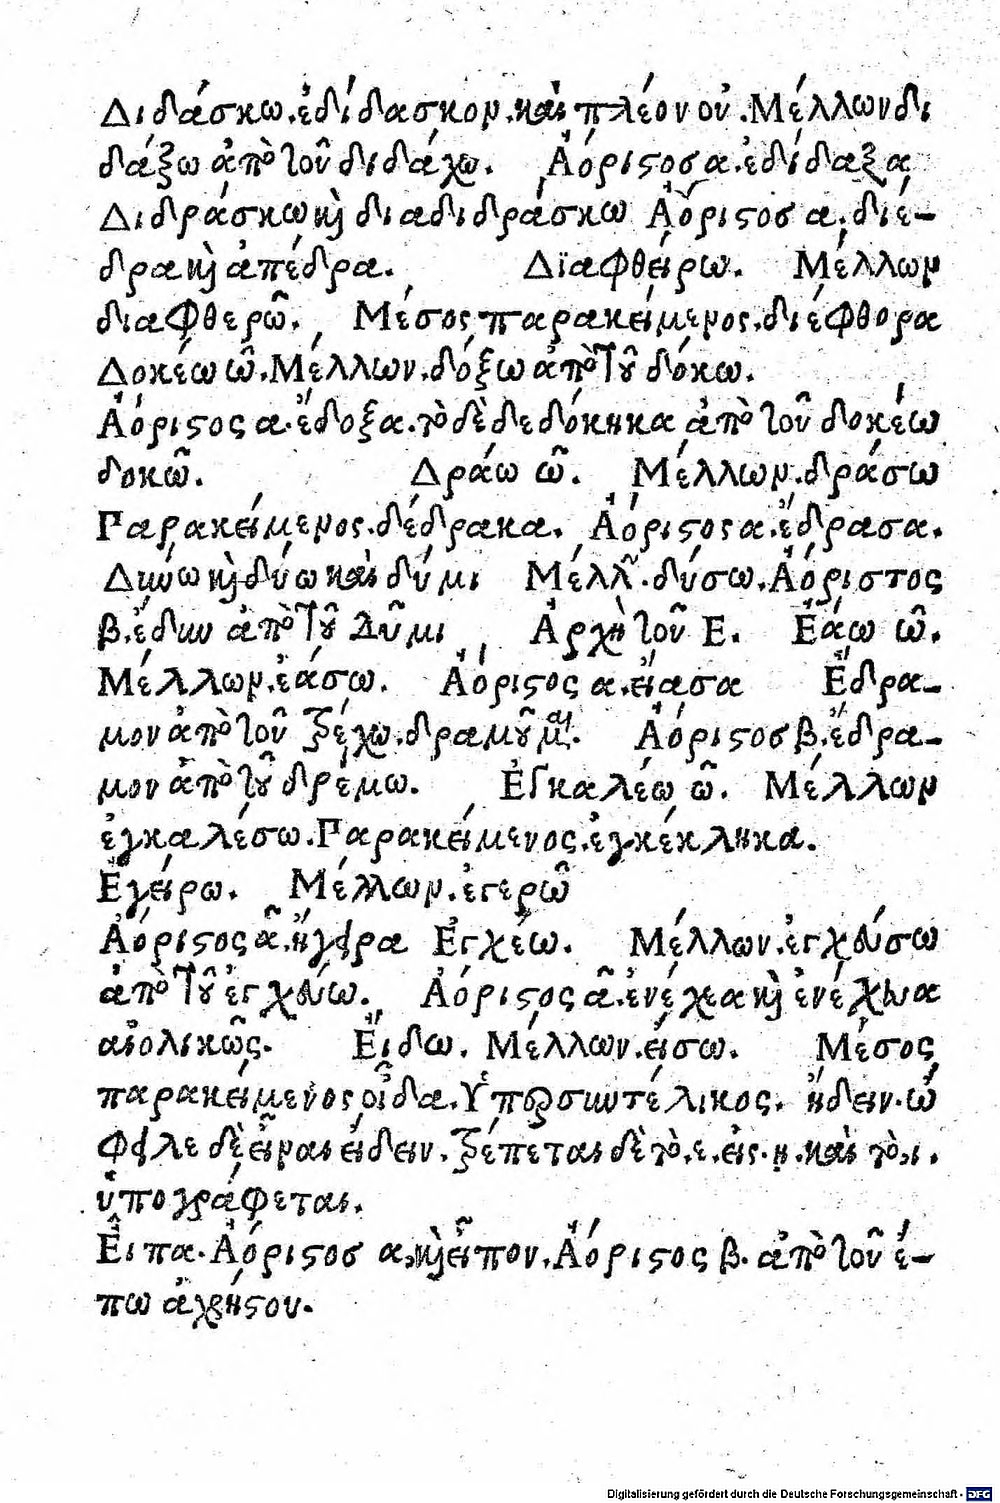 Διδάσκω.ἐδίδασκον.καὶ πλέον οὐ.Μέλλων δι
δάξω ἀπὸ τοῦ διδάχω. Ἀόριστοσ α.ἐδίδαξα
Διδράσκω καὶ διαδιδράσκω Ἀόριστοσ α.διέ-
δρα καὶ ἀπέδρα. Διαφθείρω. Μέλλων
διαφθερῶ. Μέσος παρακείμενος.διέφθορα
Δοκέω ῶ.Μέλλων.δόξω ἀπὸ τοῦ δόκω.
Ἀόριστος α.ἔδοξα.τὸ δὲ δεδόκηκα ἀπὸ τοῦ δοκέω
δοκῶ. Δράω ῶ. Μέλλων.δράσω
Παρακείμενος.δέδρακα. Ἀόριστος α.ἔδρασα.
Δύνω καὶ δύω καὶ δύμι Μέλλ.δύσω.Ἀόριστος
β.ἔδυν ἀπὸ τοῦ Δῦμι Ἀρχὴ τοῦ Ε. Ἐάω ῶ.
Μέλλων.ἐάσω. Ἀόριστος α.εἴασα Ἔδρα-
μον ἀπὸ τοῦ τρέχω.δραμοῦμαι. Ἀόριστοσ β.ἔδρα-
μον ἀπὸ τοῦ δρέμω. Ἐγκαλέω ῶ. Μέλλων
ἐγκαλέσω.Παρακείμενος.ἐγκέκληκα.
Ἐγείρω. Μέλλων.ἐγερῶ
Ἀόριστος α.ἤγειρα Ἐγχέω. Μέλλων.ἐγχεύσω
ἀπὸ τοῦ ἐγχεύω. Ἀόριστος α.ἐνέχεα καὶ ἐνέχευα
αἰολικῶς. Εἴδω. Μέλλων.εἴσω. Μέσος
παρακείμενος οἶδα.Ὑπερσυντέλικος. ἤδειν.ὤ
φειλε δὲ εἶναι εἴδειν.τρέπεται δὲ τὸ.ε.εἰς.η.καὶ τὸ.ι.
ὑπογράφεται.
Εἶπα.Ἀόριστοσ α.καὶ εἶπον.Ἀόριστος β. ἀπὸ τοῦ ἔ-
πω ἀχρήστου.
Digitalisierung gefördert durch die Deutsche Forschungsgemeinschaft - DFG